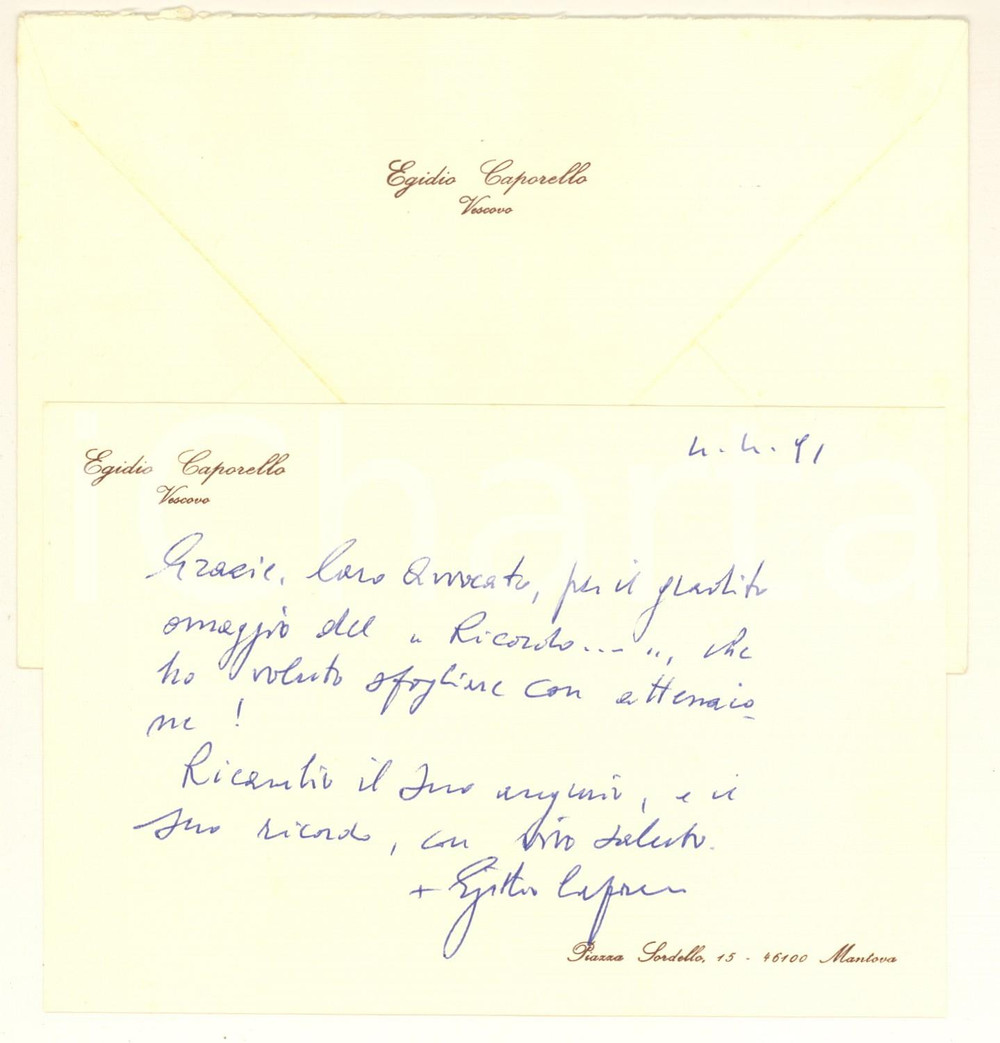 Egidio Caporello
Vescovo
Egidio Caporello
Vescovo
4.4.91
Grazie, Caro Avvocato, per il gradito
omaggio del "Ricordo...", che
ho voluto sfogliare con attenzio
ne!
Ricambio il Suo augurio, e il
Suo ricordo, con vivo saluto.
+ Egidio Caporello
Piazza Sordello, 15 - 46100 Mantova
iCharta